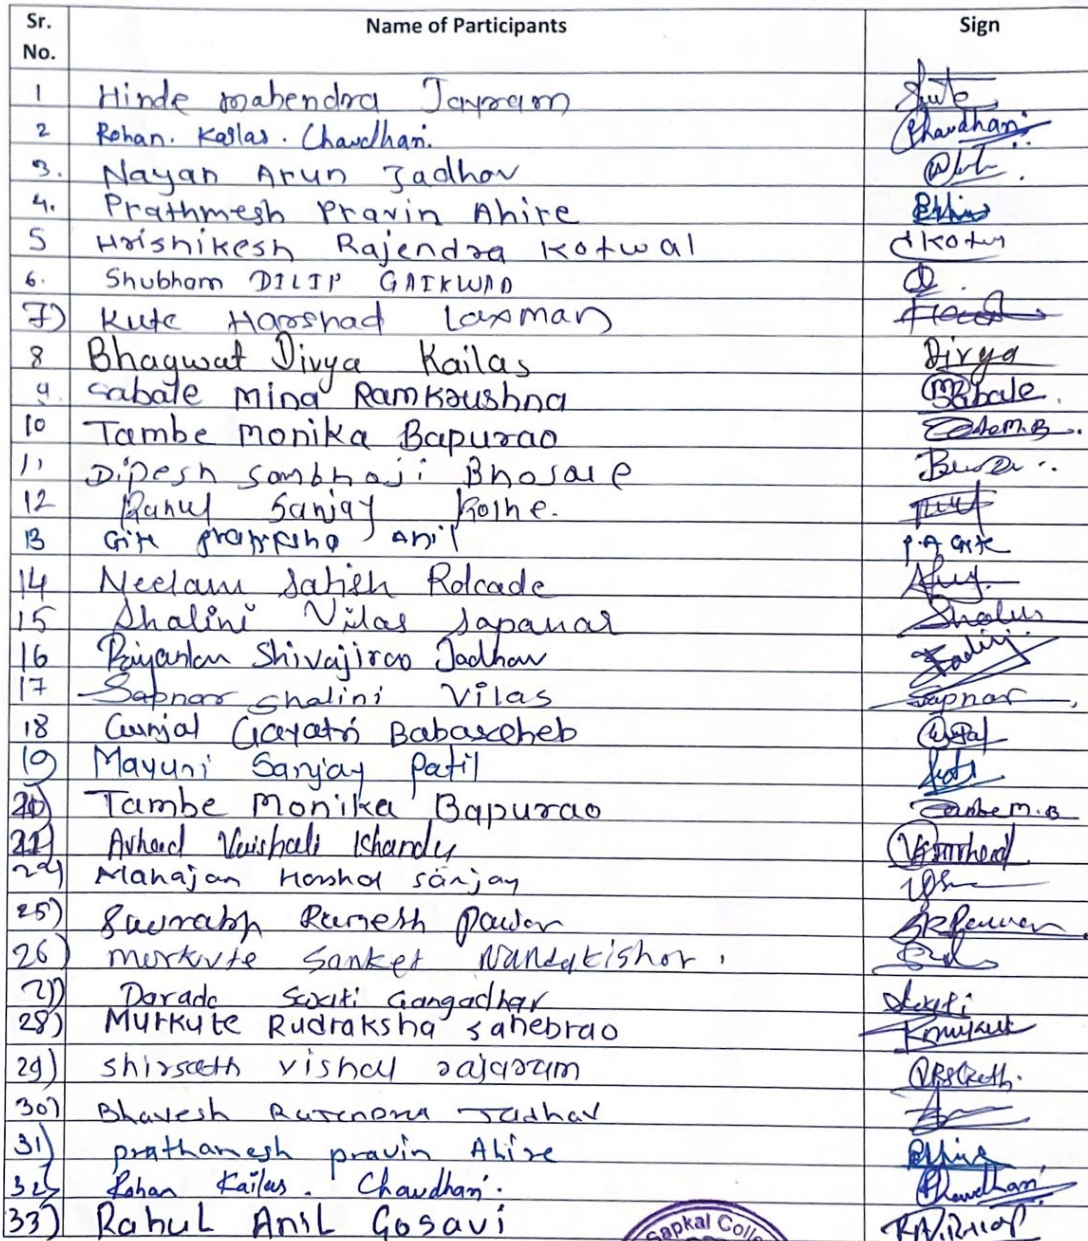 Sr. No. Name of Participants Sign
1 Hinde mahendra Jayram
2 Rohan. Kailas. Chaudhari. Chaudhari
3. Nayan Arun Jadhav
4. Prathmesh Pravin Ahire
5 Hrishikesh Rajendra Kotwal
6. Shubham DILIP GAIKWAD
7) Kute Harshad Laxman
8 Bhagwat Divya Kailas Divya
9. Sabale Mina Ramkrushna Sabale
10 Tambe Monika Bapurao
11 Dipesh Sambhaji Bhosale
12 Rahul Sanjay Kolhe.
13 Gite anil P.A Gite
14 Neelam Satish Rokade
15 Shalini Vilas Sapanar
16 Priyanka Shivajirao Jadhav
17 Sapnar Shalini Vilas Sapnar
18 Gunjal Gayatri Babasaheb
19) Mayuri Sanjay Patil
20) Tambe Monika Bapurao Tambe M.B
Avhad Vaishali Khandu
Mahajan Harshal Sanjay
25) Saurabh Ramesh Pawar
26) murkute Sanket Nandakishor.
Darade Swati Gangadhar Swati
28) Murkute Rudraksha Sahebrao
29) shirsath vishal rajaram
30) Bhavesh Rajendra Jadhav
31) prathamesh pravin Ahire
32) Rohan Kailas. Chaudhari. Chaudhari
33) Rahul Anil Gosavi
Sapkal Colle